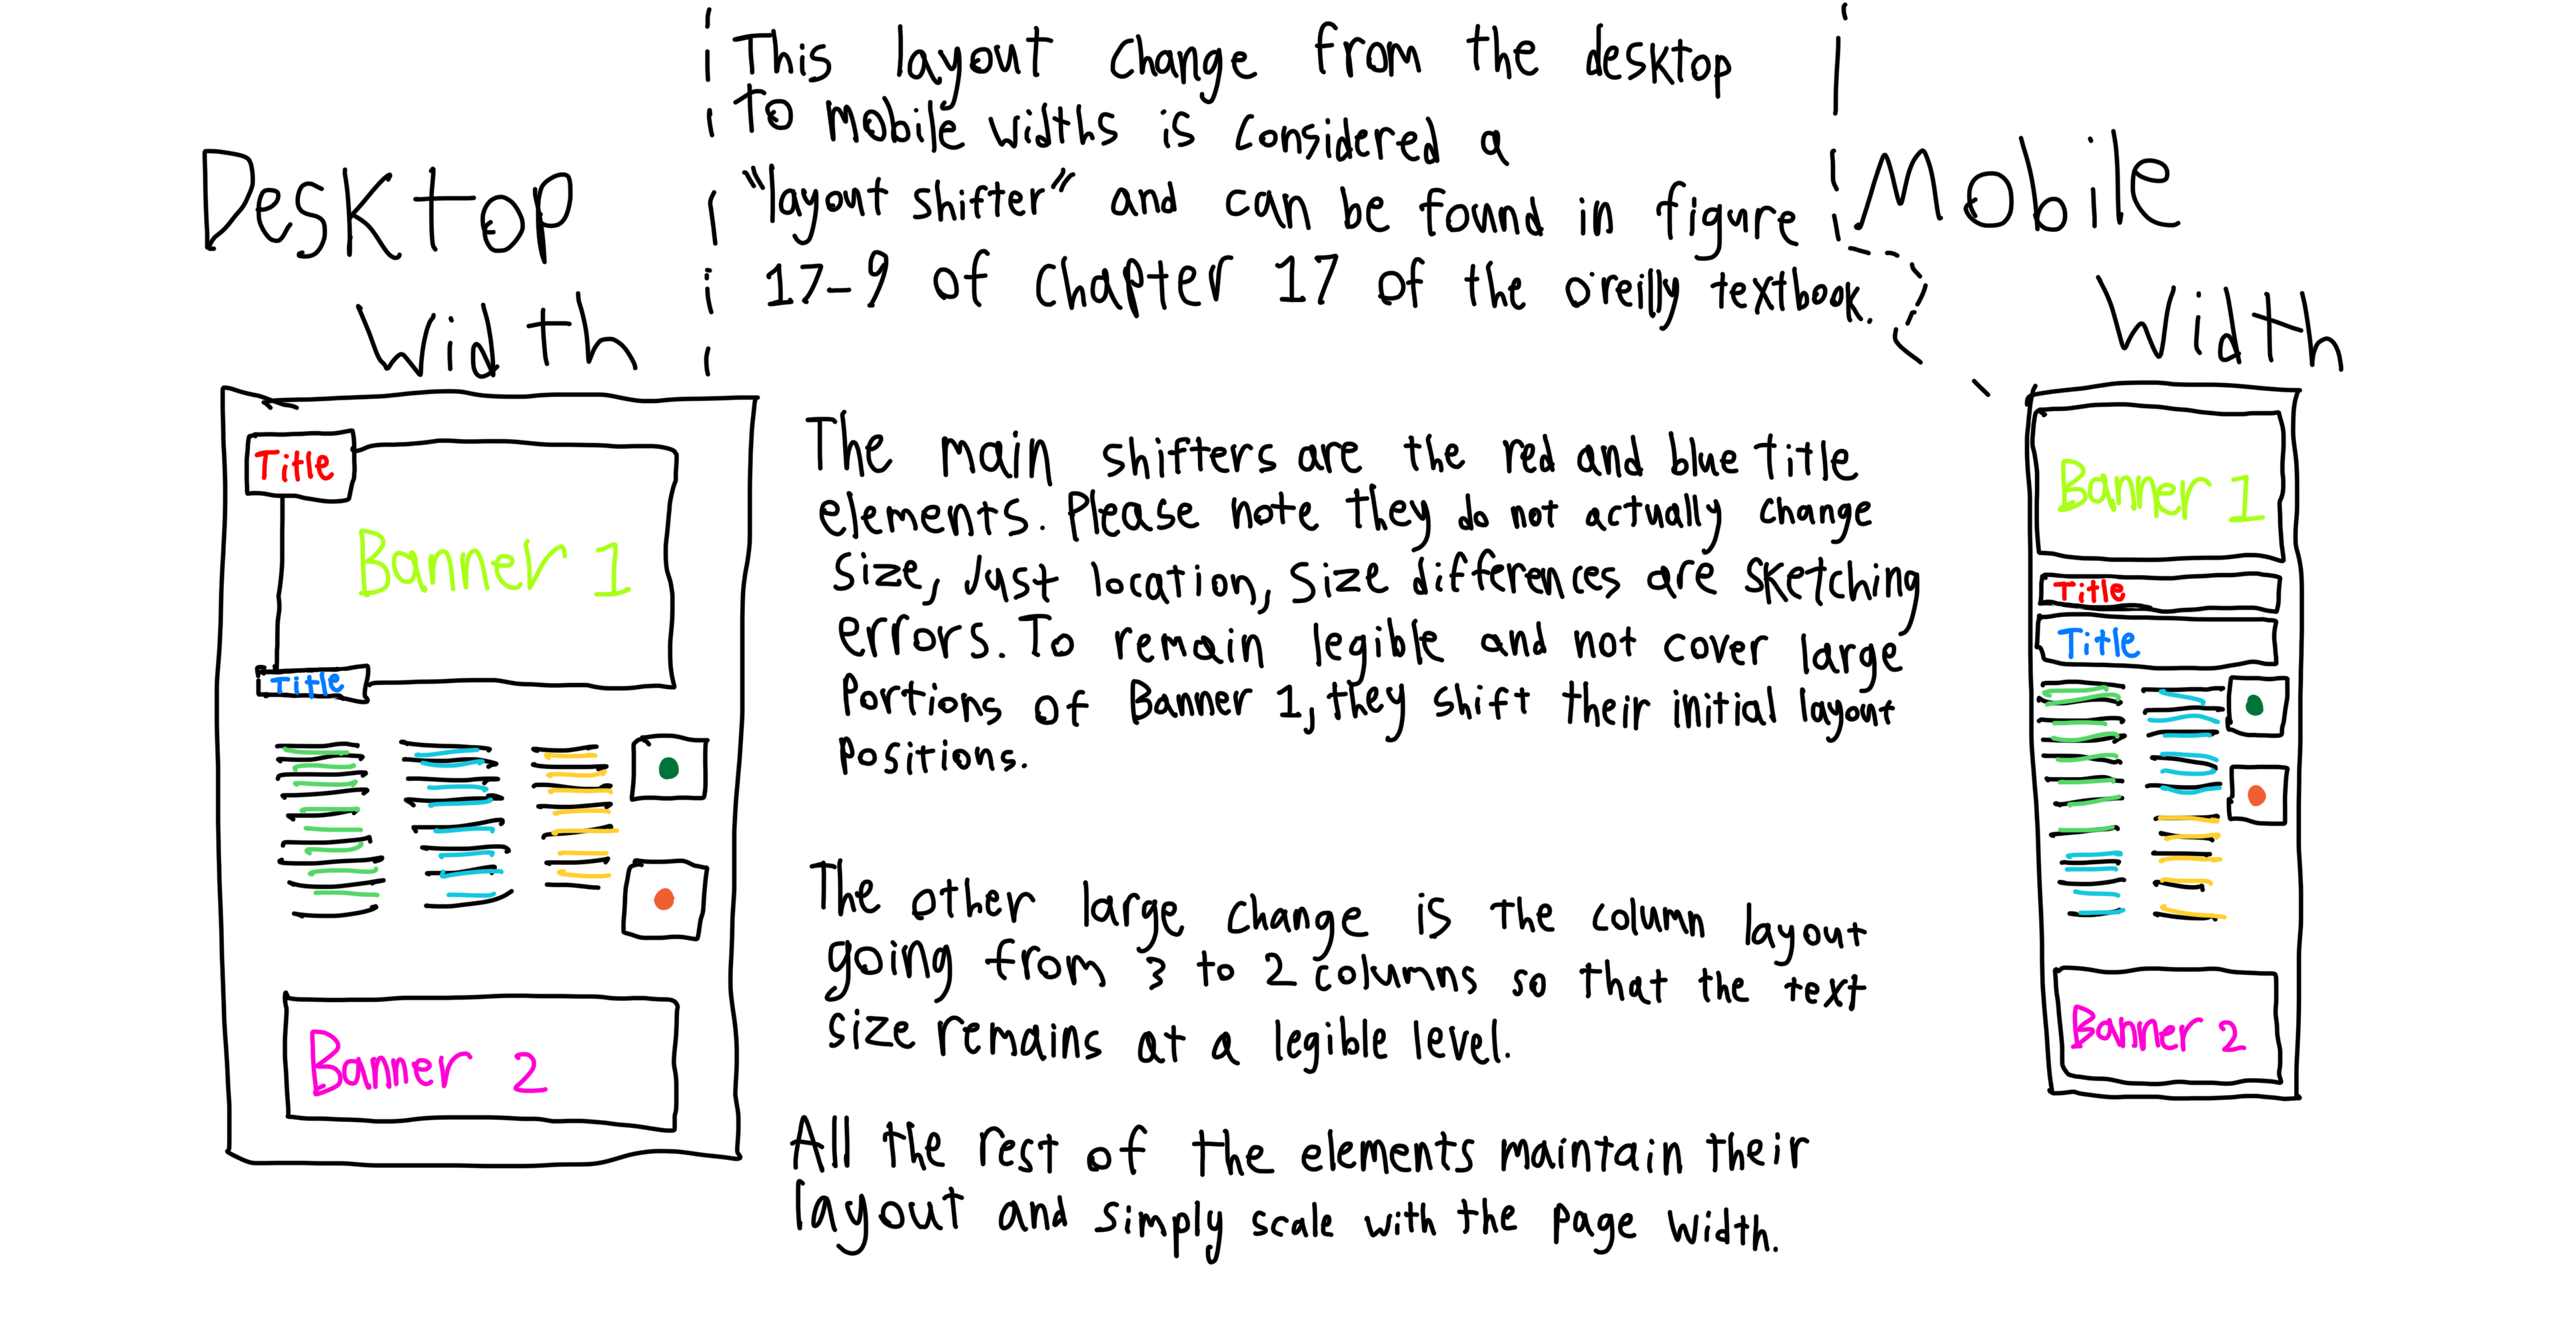 Desktop
Width
This layout change from the desktop
to mobile widths is considered a
"layout shifter" and can be found in figure
17-9 of chapter 17 of the o'reilly textbook.
Mobile
Width
Title
Banner 1
Title
Banner 2
The main shifters are the red and blue title
elements. Please note they do not actually change
size, Just location, size differences are sketching
errors. To remain legible and not cover large
Portions of Banner 1, they shift their initial layout
Positions.
The other large change is the column layout
going from 3 to 2 columns so that the text
size remains at a legible level.
All the rest of the elements maintain their
layout and simply scale with the page width.
Banner 1
Title
Title
Banner 2